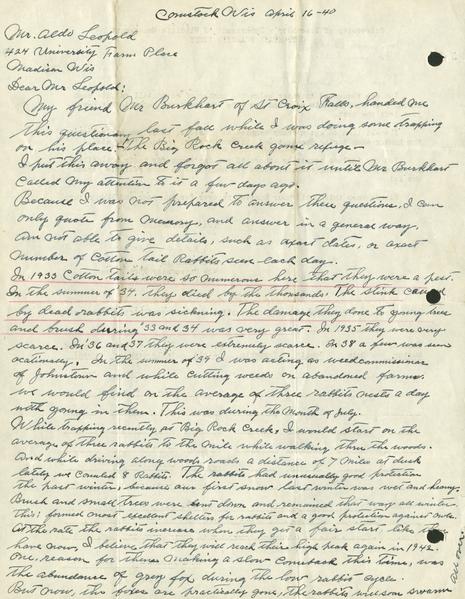 Comstock Wis April 16-40
Mr. Aldo Leopold
424 University Farm Place
Madison Wis
Dear Mr Leopold:
My friend Mr Burkhart of St Croix Falls, handed me
this questionary last fall while I was doing some trapping
on his place.- The Big Rock Creek game refuge -
I put this away and forgot all about it until Mr Burkhart
called my attention to it a few days ago.
Because I was not prepared to answer these questions, I can
only quote from memory, and answer in a general way.
Am not able to give details, such as exact dates, or exact
number of Cotton tail Rabbits seen each day.
In 1933 Cotton tails were so numerous here that they were a pest.
In the summer of '34. they died by the thousands. The stink caused
by dead rabbits was sickning. The damage they done to young trees
and brush during '33 and '34 was very great. In 1935 they were very
scarce. In '36 and '37 they were extremely scarce. In '38 a few was seen
ocationaly. In the summer of '39 I was acting as weed commissioner
of Johnstown and while cutting weeds on abandoned farms.
we would find on the average of three rabbits nests a day
with young in them. This was during the month of July.
While trapping recently at Big Rock Creek, I would start on the
average of three rabbits to the mile while walking thru the woods.
And while driving along woods roads a distance of 7 miles at dusk
lately we counted 8 Rabbits. The rabbits had unusually good protection
the past winter, because our first snow last winter was wet and heavy.
Brush and small trees were bent down and remained that way all winter.
this formed most excellent shelter for rabbits and a good protection against
At the rate the rabbits increase when they get a fair start like they
have now, I believe that they will reach their high peak again in 1942.
One, reason for them making a slow comeback this time, was
the abundance of grey fox during the low rabbit cycle.
But now, the foxes are practically gone, the rabbits will soon swarm
all over.